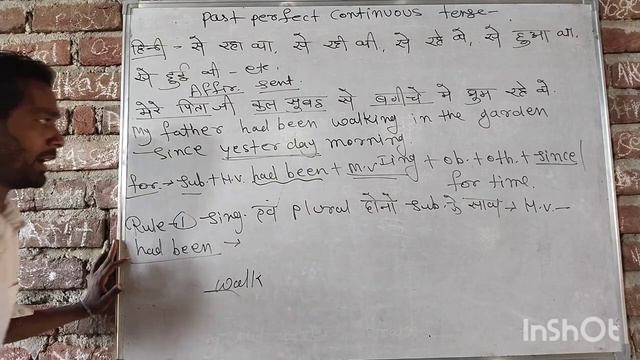 Past perfect Continuous tense-
हिन्दी - से रहा था, से रही थी, से रहे थे, से हुआ था,
से हुई थी - etc.
Affir. Sent.
मेरे पिता जी कल सुबह से बगीचे में घूम रहे थे.
My father had been walking in the garden
since yesterday morning.
for.→ Sub.+HV. had been + M.V I ing + ob. + oth. + since/
for time.
Rule-① Sing. एवं plural दोनों sub. के साथ → M.V.-
had been →
walk
InShOt